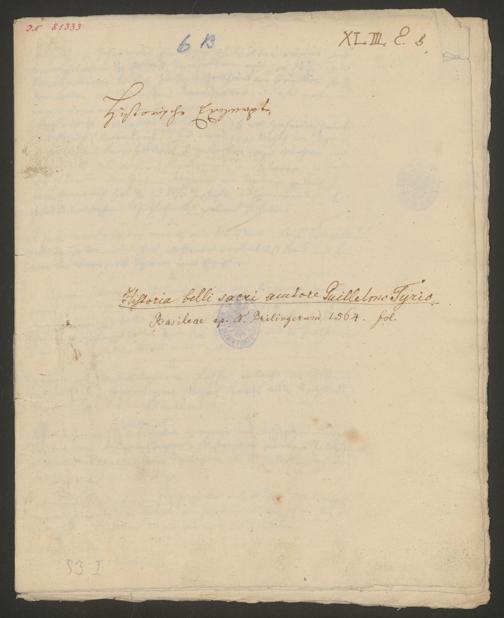 I.N 81333
6 B
XL. III. E. b.
Historische Excerpte
Historia belli sacri autore Guillelmo Tyrio
Basileae ap. N. Brilingerum 1564. fol.
53 I